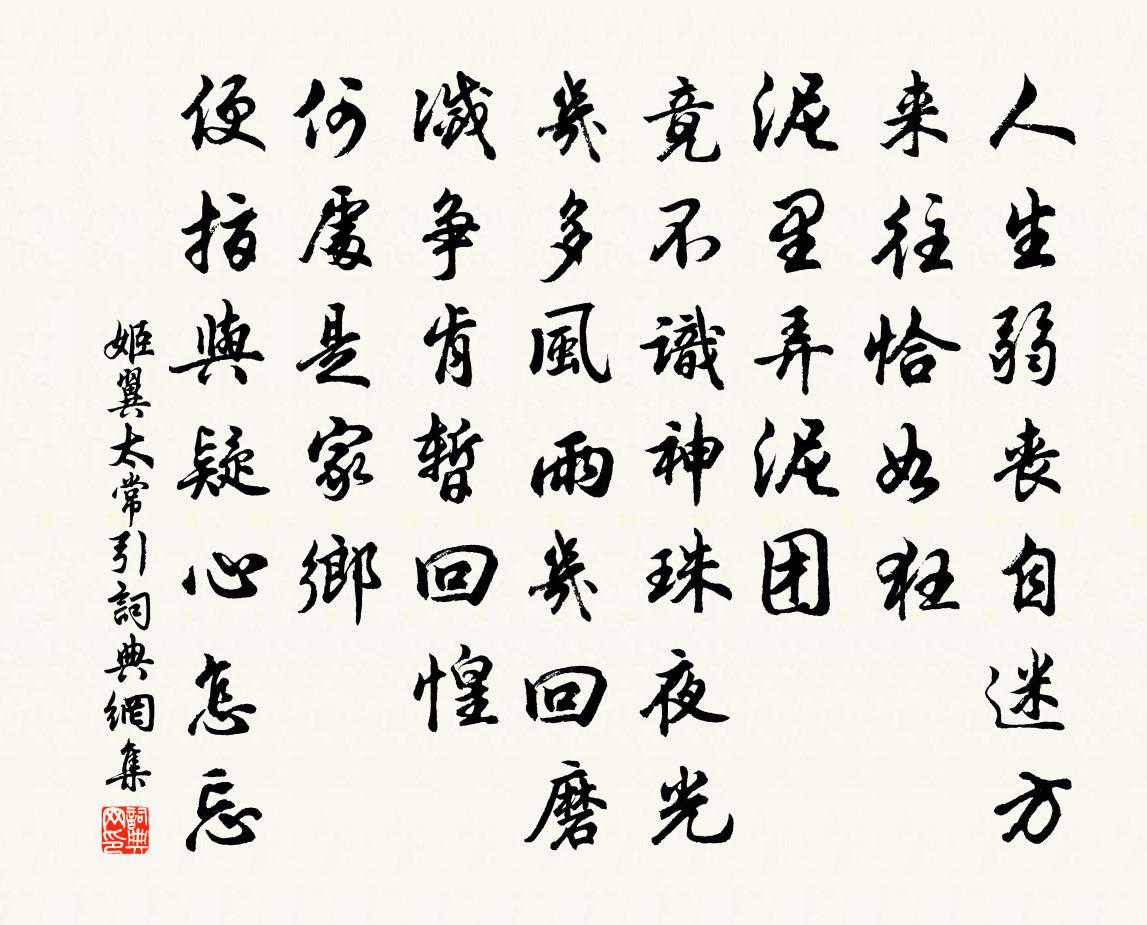 人生弱丧自迷方
来往恰如狂
泥里弄泥团
竟不識神珠夜光
幾多風雨幾回磨
滅争肯暫回惶
何處是家鄉
便指與疑心怎忘
姬翼太常引詞典網集
詞典网印